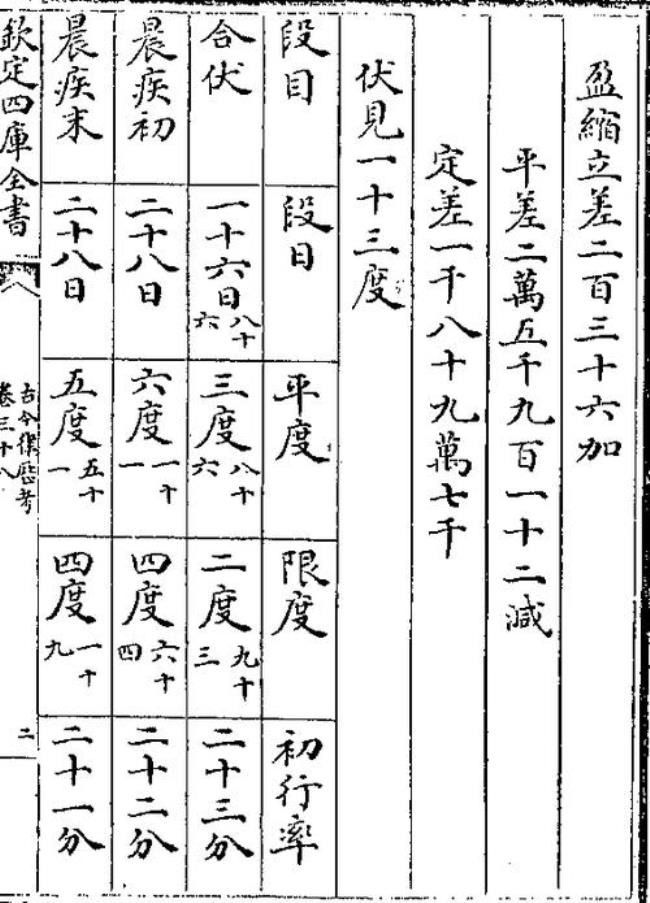 盈縮立差二百三十六加
平差二萬五千九百一十二減
定差一千八十九萬七千
伏見一十三度
段目 段日 平度 限度 初行率
合伏 一十六日八十六 三度八十六 二度九十三 二十三分
晨疾初 二十八日 六度一十一 四度六十四 二十二分
晨疾末 二十八日 五度五十一 四度一十九 二十一分
欽定四庫全書 古今律歷考 卷三十八 二